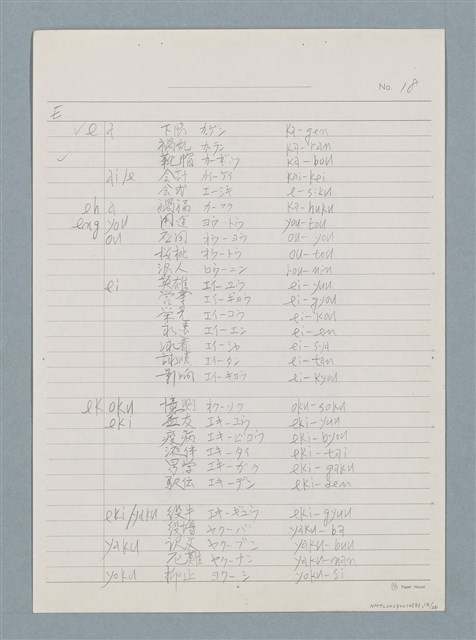 No. 18
E
✓ e a 下限 カゲン ka-gen
禍乱 カーラン ka-ran
✓ 靴帽 カーボウ ka-bou
ai/e 会計 カイーケイ kai-kei
会式 エーシキ e-siku
eh a 禍福 カーフク ka-huku
eng you 用途 ヨウートウ you-tou
ou 応用 オウーヨウ ou-you
桜桃 オウートウ ou-tou
浪人 ロウーニン rou-nin
ei 英雄 エイーユウ ei-yuu
営業 エイーギョウ ei-gyou
栄光 エイーコウ ei-kou
永遠 エイーエン ei-en
泳者 エイーシャ ei-sya
詠嘆 エイータン ei-tan
影响 エイーキョウ ei-kyou
ek oku 憶測 オクーソク oku-soku
eki 益友 エキーユウ eki-yuu
疫病 エキービョウ eki-byou
液体 エキータイ eki-tai
易学 エキーガク eki-gaku
駅伝 エキーデン eki-den
eki/yaku 役牛 エキーギュウ eki-gyuu
役場 ヤクーバ yaku-ba
yaku 訳文 ヤクーブン yaku-bun
厄難 ヤクーナン yaku-nan
yoku 抑止 ヨクーシ yoku-si